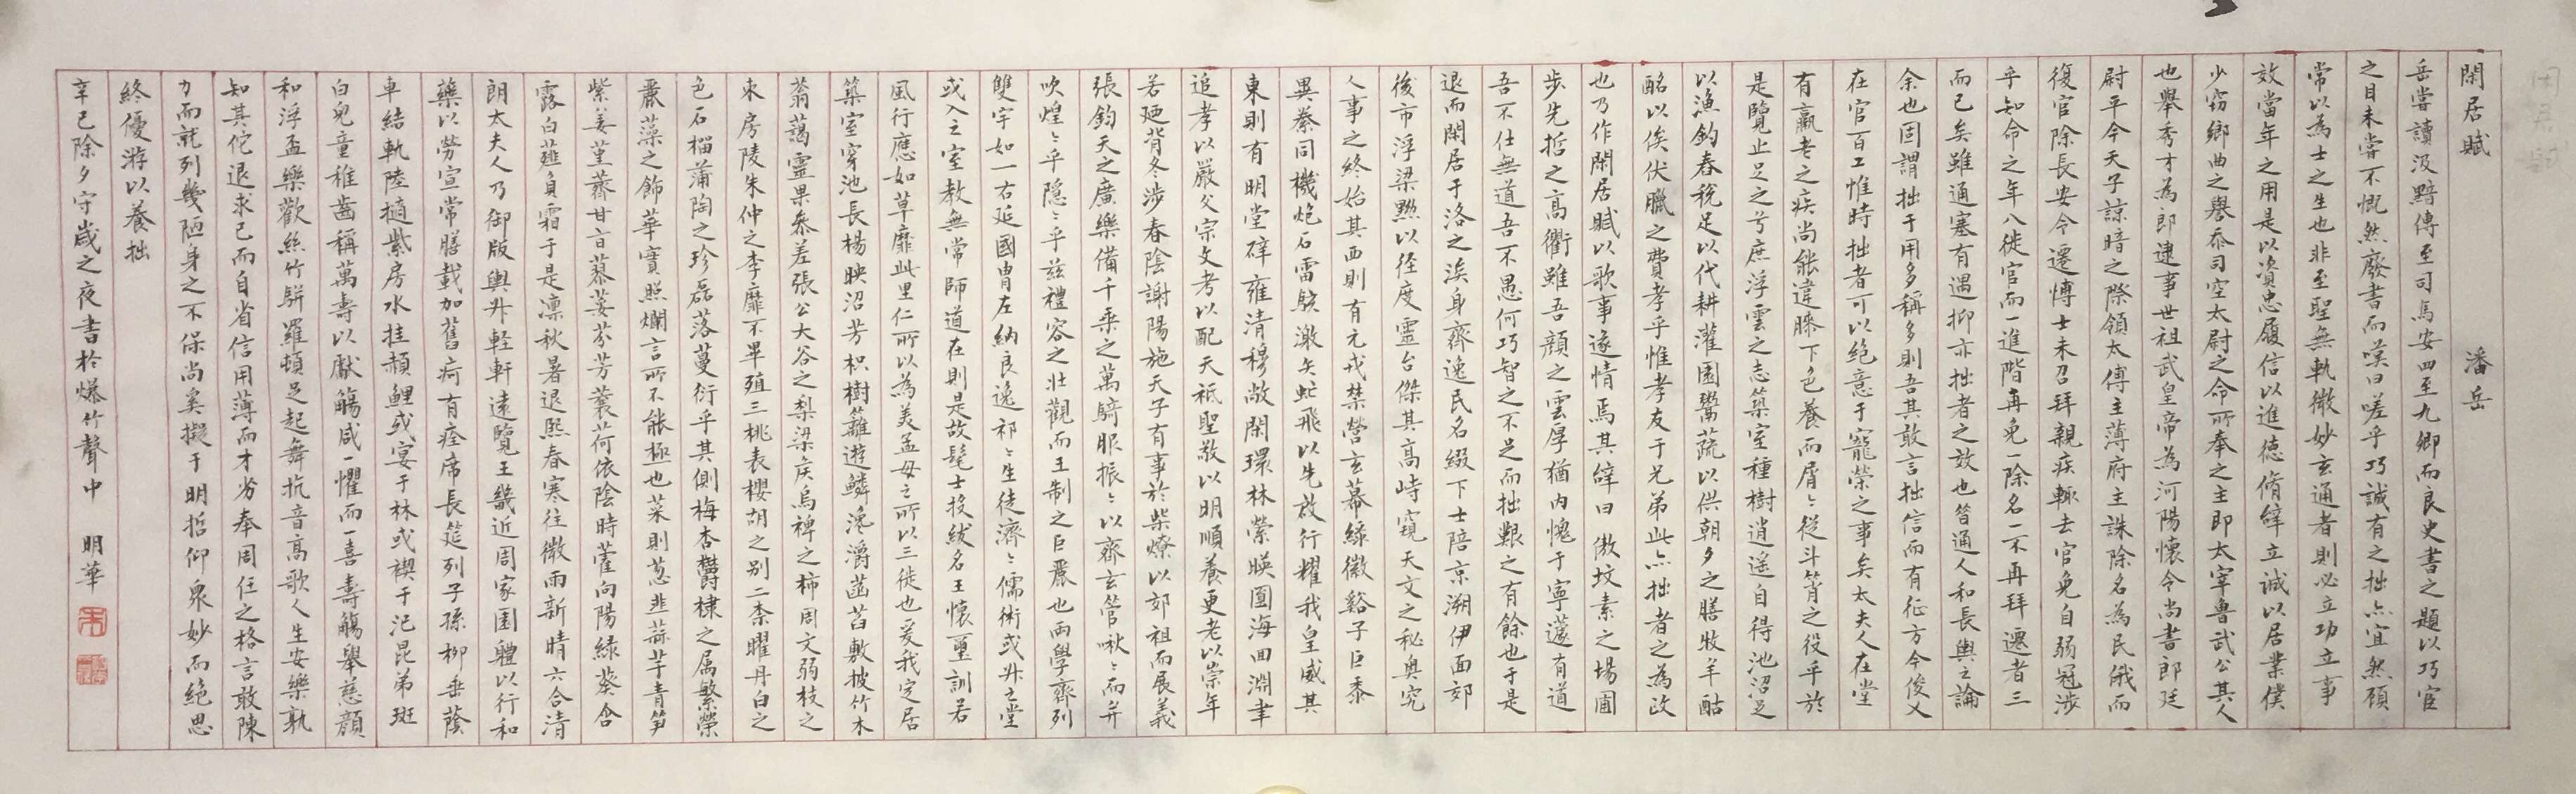 閑居賦 潘岳
岳嘗讀汲黯傳至司馬安四至九卿而良史書之題以巧宦
之目未嘗不慨然廢書而嘆曰嗟乎巧誠有之拙亦宜然顧
常以為士之生也非至聖無軌微妙玄通者則必立功立事
效當年之用是以資忠履信以進德脩辭立誠以居業僕
少竊鄉曲之譽忝司空太尉之命所奉之主即太宰魯武公其人
也舉秀才為郎逮事世祖武皇帝為河陽懷令尚書郎廷
尉平今天子諒暗之際領太傅主薄府主誅除名為民俄而
復官除長安令遷博士未召拜親疾輒去官免自弱冠涉
乎知命之年八徙官而一進階再免一除名一不再拜遷者三
而已矣雖通塞有遇抑亦拙者之效也昔通人和長輿之論
余也固謂拙于用多稱多則吾其敢言拙信而有征方今俊乂
在官百工惟時拙者可以絕意于寵榮之事矣太夫人在堂
有羸老之疾尚能違膝下色養而屑〻從斗筲之役乎於
是覽止足之分庶浮雲之志築室種樹逍遥自得池沼足
以漁釣春稅足以代耕灌園鬻蔬以供朝夕之膳牧羊酤
酪以俟伏臘之費孝乎惟孝友于兄弟此亦拙者之為政
也乃作閑居賦以歌事遂情焉其辭曰傲墳素之場圃
步先哲之高衢雖吾顏之雲厚猶內愧于寧蘧有道
吾不仕無道吾不愚何巧智之不足而拙艱之有餘也于是
退而閑居于洛之涘身齊逸民名綴下士陪京溯伊面郊
後市浮梁黝以径度靈台傑其高峙窺天文之秘奥究
人事之終始其西則有元戎禁營玄幕綠徽谿子巨黍
異絭同機炮石雷駭激矢虻飛以先啟行耀我皇威其
東則有明堂辟雍清穆敞閑環林縈映圓海回淵聿
追孝以嚴父宗文考以配天祗聖敬以明順養更老以崇年
若廼背冬涉春陰謝陽施天子有事於柴燎以郊祖而展義
張鈞天之廣樂備千乘之萬騎服振〻以齊玄管啾〻而並
吹煌〻乎隐〻乎兹禮容之壯觀而王制之巨麗也兩學齊列
雙宇如一右延國胄左納良逸祁〻生徒濟〻儒術或升之堂
或入之室教無常師道在則是故髦士投紱名王懷璽訓若
風行應如草靡此里仁所以為美孟母之所以三徙也爰我定居
築室穿池長楊映沼芳枳樹籬遊鱗瀺灂菡萏敷披竹木
蓊藹靈果參差張公大谷之梨梁侯烏椑之柿周文弱枝之
棗房陵朱仲之李靡不畢殖三桃表櫻胡之别二柰曜丹白之
色石榴蒲陶之珍磊落蔓衍乎其側梅杏鬱棣之属繁榮
麗藻之飾華實照爛言所不能極也菜則葱韭蒜芋青笋
紫姜堇薺甘旨蓼荽芬芳蘘荷依陰時藿向陽綠葵含
露白薤負霜于是凛秋暑退熙春寒往微雨新晴六合清
朗太夫人乃御版輿升軽軒遠覽王畿近周家園體以行和
藥以勞宣常膳載加舊疴有痊席長筵列子孫柳垂蔭
車結軌陸擿紫房水挂赬鯉或宴于林或禊于汜昆弟斑
白兒童稚齒稱萬壽以獻觴咸一懼而一喜壽觴舉慈顏
和浮盃樂歡絲竹駢羅頓足起舞抗音高歌人生安樂孰
知其佗退求己而自省信用薄而才劣奉周任之格言敢陳
力而就列幾陋身之不保尚奚擬于明哲仰衆妙而絕思
終優游以養拙
辛已除夕守歲之夜書於爆竹聲中 明華